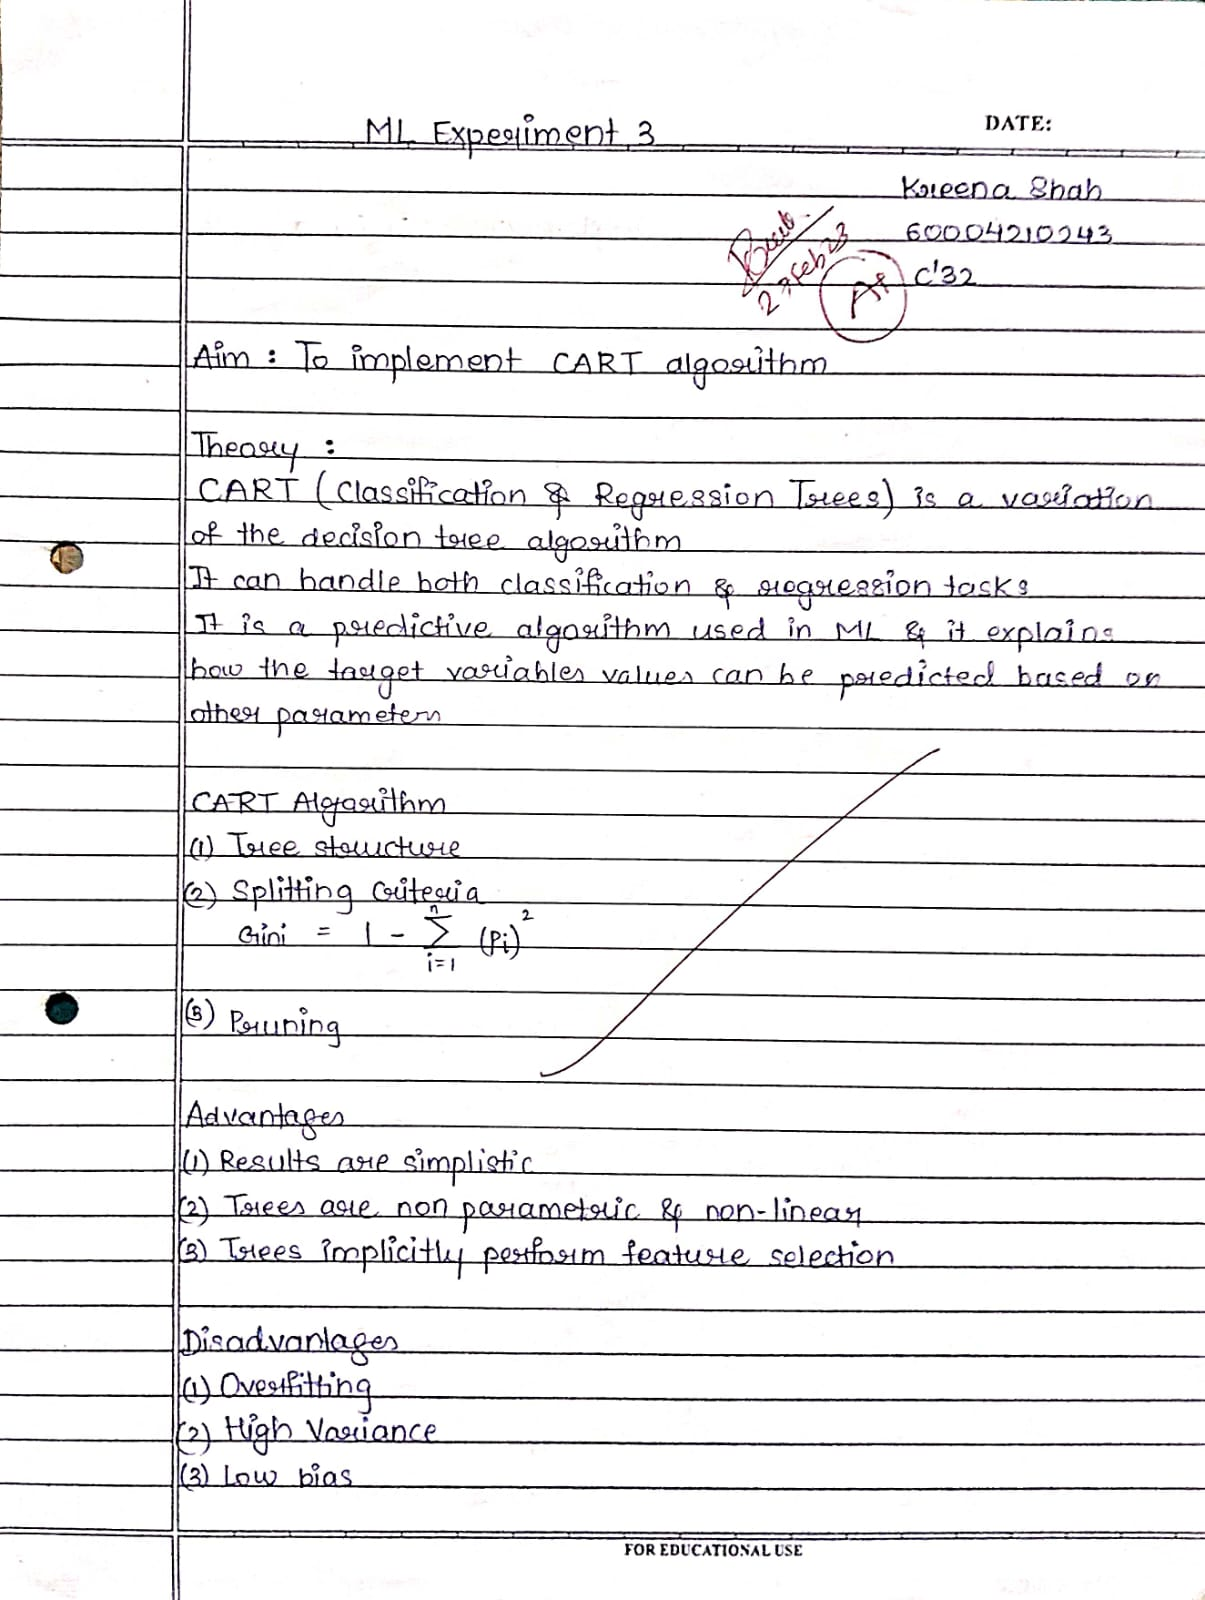 ML Experiment 3
DATE:
Kreena Shah
60004210243
C'32
27 Feb 23
A+
Aim : To implement CART algorithm
Theory :
CART (Classification & Regression Trees) is a variation
of the decision tree algorithm
It can handle both classification & regression tasks
It is a predictive algorithm used in ML & it explains
how the target variables values can be predicted based on
other parameters
CART Algorithm
(1) Tree structure
(2) Splitting Criteria
Gini = 1 - n∑i=1 (Pi)²
(3) Pruning
Advantages
(1) Results are simplistic
(2) Trees are non parametric & non-linear
(3) Trees implicitly perform feature selection
Disadvantages
(1) Overfitting
(2) High Variance
(3) Low bias
FOR EDUCATIONAL USE